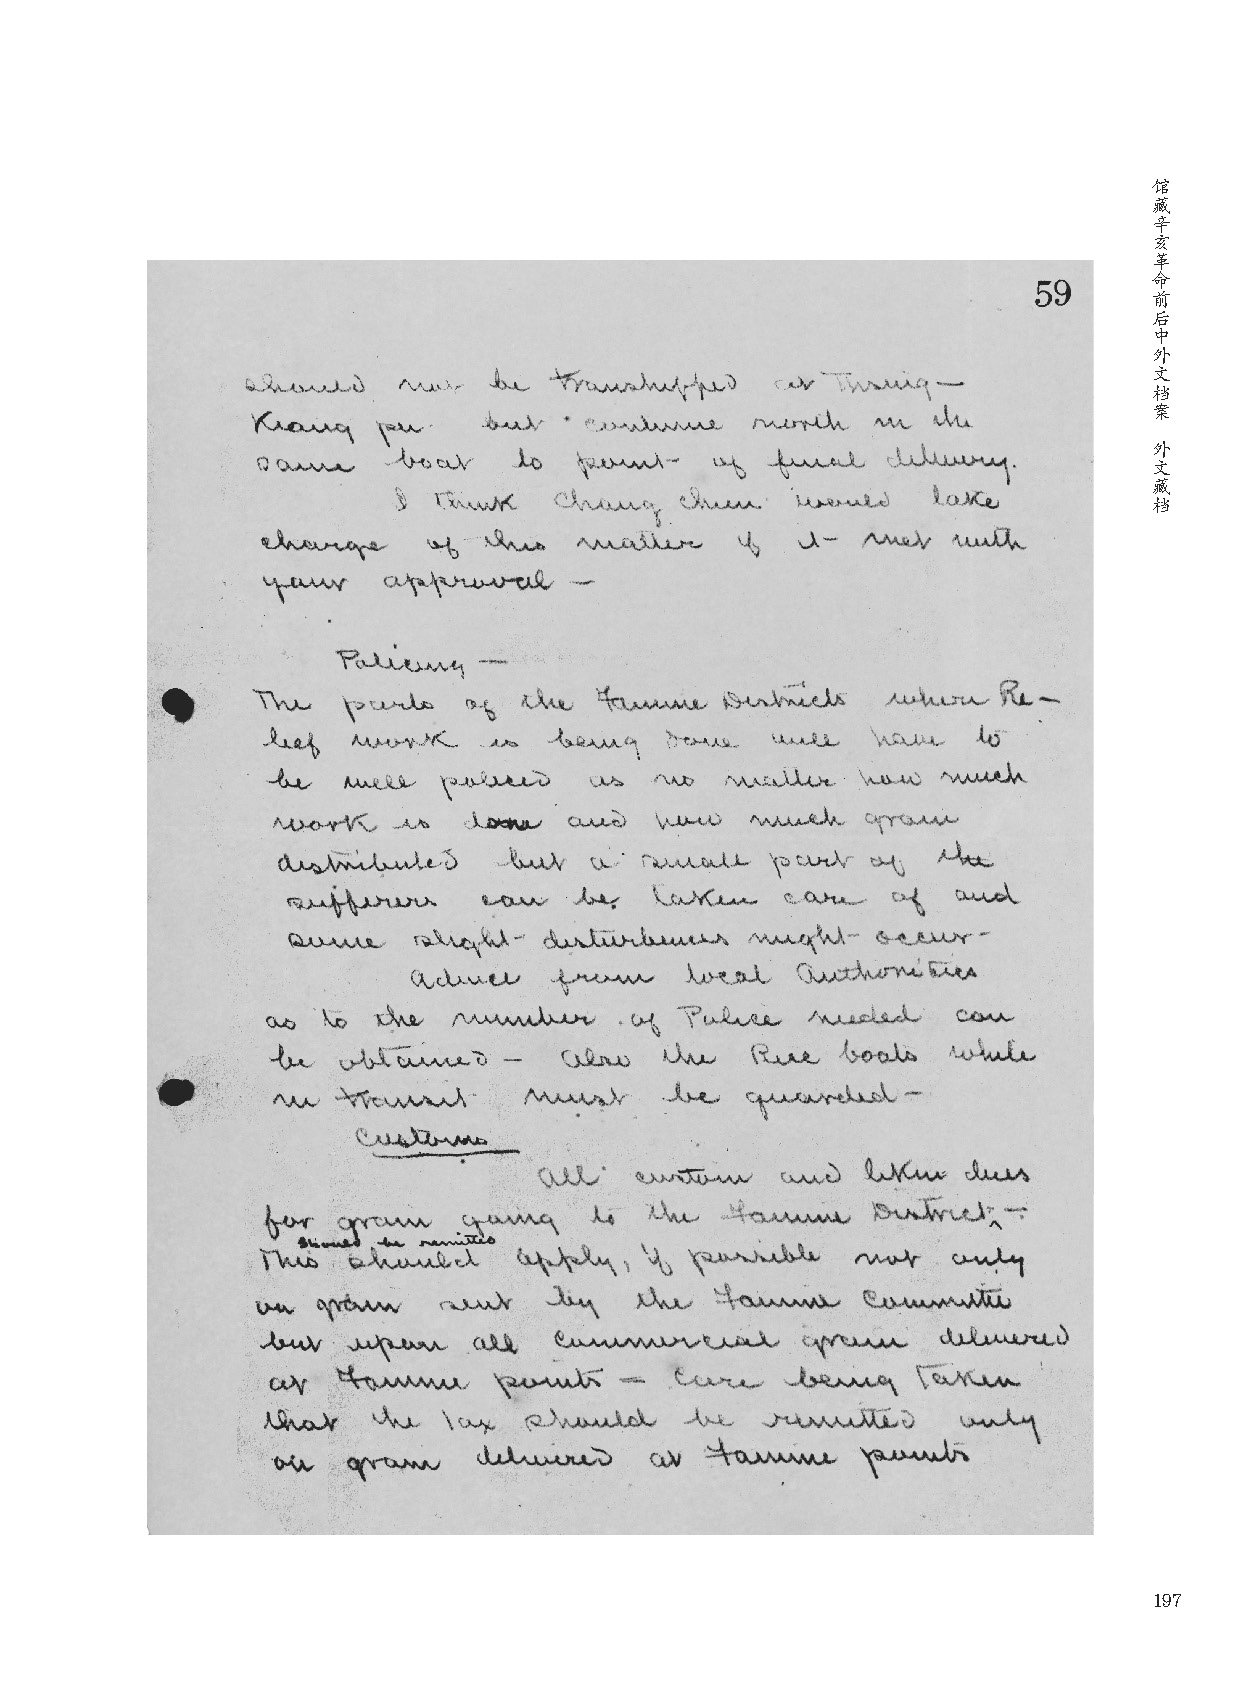 59
should not be transhipped at Thsing-
Kiang pu but continue north in the
same boat to point of final delivery.
I think Chang chun would take
charge of this matter if it met with
your approval —
Policing —
The parts of the Famine Districts where Re-
lief work is being done will have to
be well policed as no matter how much
work is done and how much grain
distributed but a small part of the
sufferers can be taken care of and
some slight disturbences might occur -
Advice from local Authorities
as to the number of Police needed can
be obtained - Also the Rice boats while
in transit must be guarded -
Customs
All custom and likin dues
for grain going to the Famine District ^ -
should be remitted
This should apply, if possible not only
on grain sent by the Famine Committe
but upon all Commercial grain delivered
at Famine points - Care being taken
that the tax should be remitted only
on grain delivered at Famine points
馆藏辛亥革命前后中外文档案 外文藏档
197